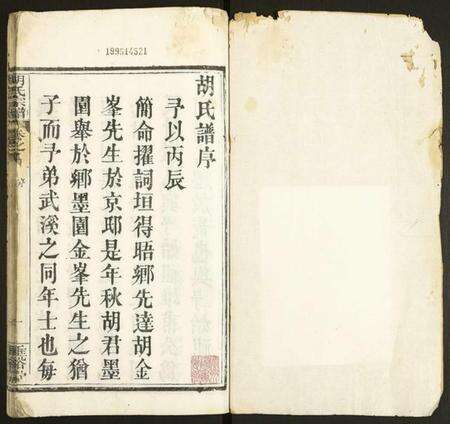 199514521
胡氏譜序
予以丙辰
簡命擢詞垣得晤鄉先達胡金
峯先生於京邸是年秋胡君墨
園舉於鄉墨園金峯先生之猶
子而予弟武溪之同年士也每
胡氏宗譜
序
一